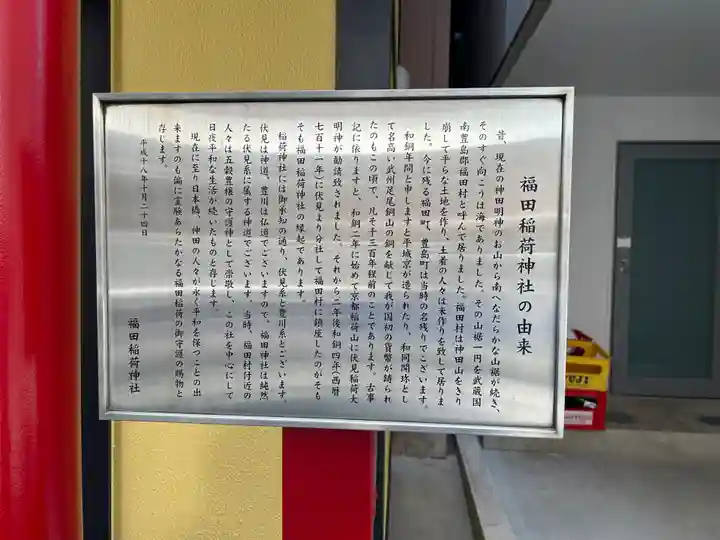 福田稲荷神社の由来
昔、現在の神田明神のお山から南へなだらかな山裾が続き、
そのすぐ向こうは海でありました。その山裾一円を武蔵国
南豊島郡福田村と呼んで居りました。福田村は神田山をきり
崩して平らな土地を作り、土着の人々は米作りを致して居りま
した。今に残る福田町、豊島町は当時の名残りでございます。
和銅年間と申しますと平城京が造られたり、和同開珎とし
て名高い武州足尾銅山の銅を献じて我が国初の貨幣が鋳られ
たのもこの頃で、凡そ千三百年程前のことであります。古事
記に依りますと、和銅二年に始めて京都稲荷山に伏見稲荷大
明神が勧請致されました。それから二年後和銅四年(西暦
七百十一年)に伏見より分社して福田村に鎮座したのがそも
そも福田稲荷神社の縁起であります。
稲荷神社には御承知の通り、伏見系と豊川系とございます。
伏見は神道、豊川は仏道でございますので、福田神社は純然
たる伏見系に属する神道でございます。当時、福田村付近の
人々は五穀豊穣の守護神として崇敬し、この社を中心にして
日夜平和な生活が続いたものと存じます。
現在に至り日本橋、神田の人々が永く平和を保つことの出
来ますのも偏に霊験あらたかなる福田稲荷の御守護の賜物と
存じます。
平成十八年十月二十四日
福田稲荷神社